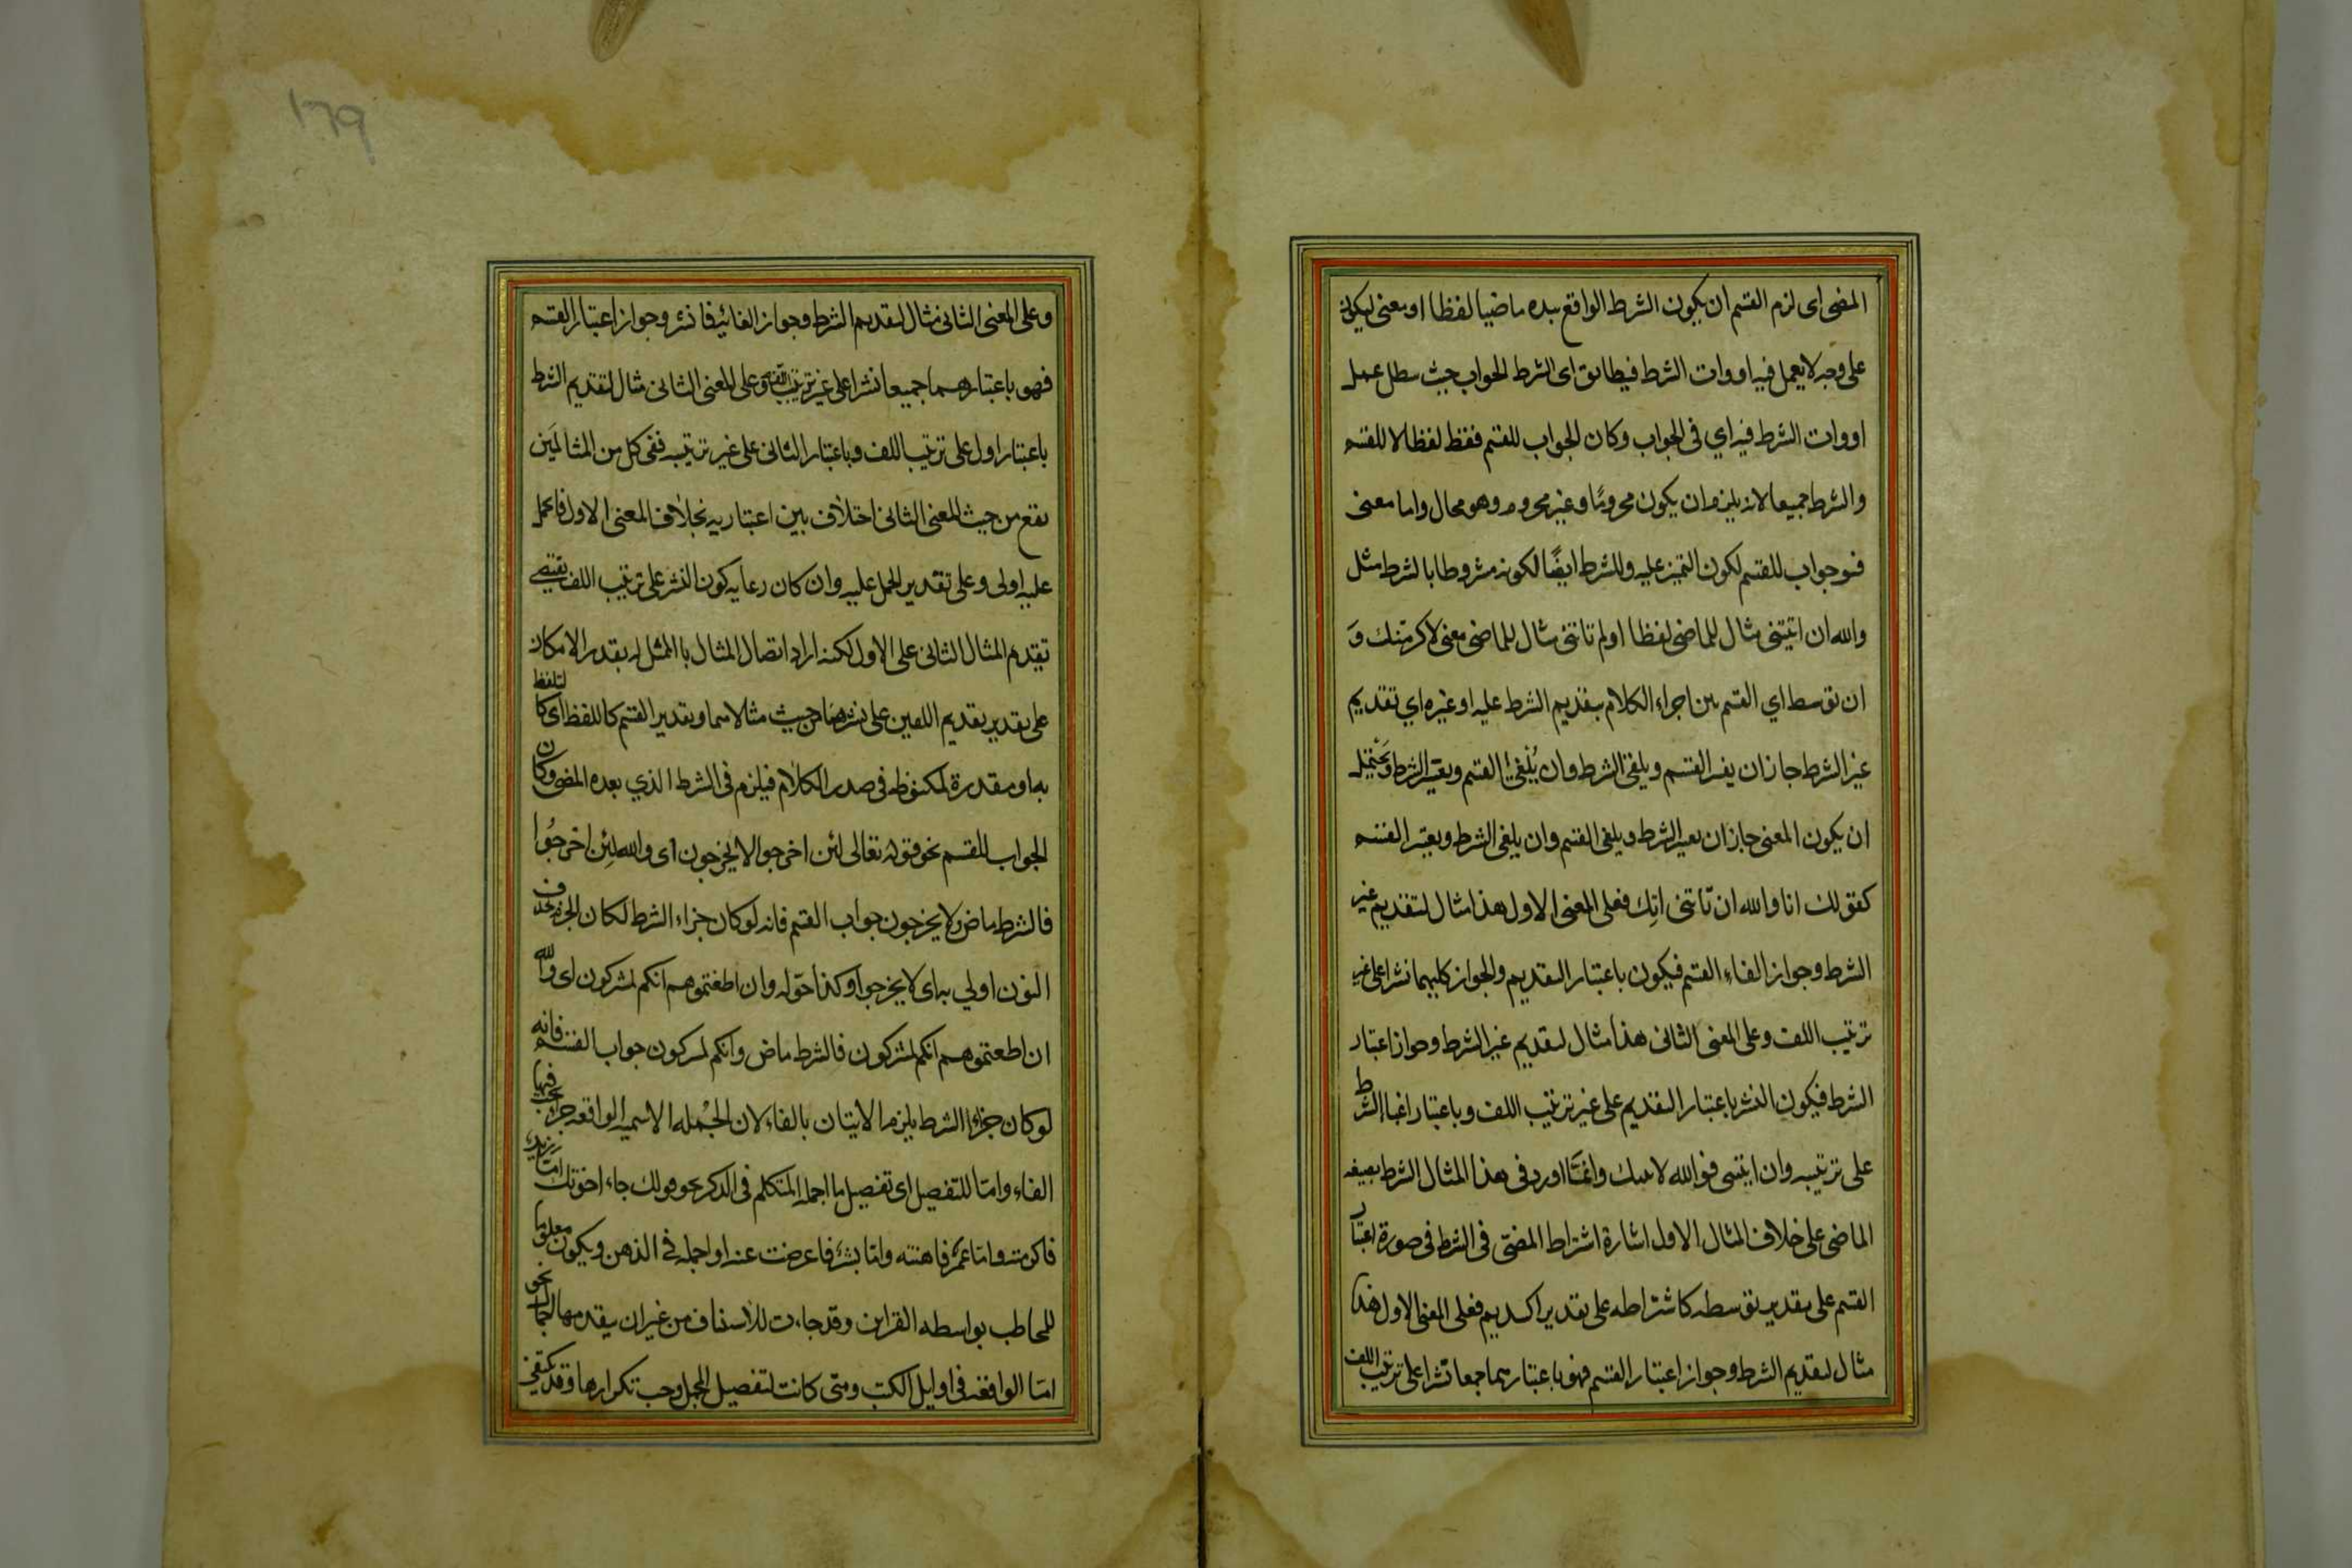 المضى اى لزم القسم ان يكون الشرط الواقع بعده ماضيا لفظا او معنى ليكون
على وجه لا يعمل فيه ادوات الشرط فيطابق اى الشرط الجواب حيث بطل عمل
ادوات الشرط فيه اي فى الجواب وكان الجواب للقسم فقط لفظا لا للقسم
والشرط جميعا لانه يلزم ان يكون مجزومًا وغير مجزوم وهو محال واما معنى
فهو جواب للقسم لكون اليمين عليه وللشرط ايضًا لكونه مشروطا بالشرط مثل
والله ان اتيتنى مثال للماضى لفظا او لم تاتنى مثال للماضى معنى لاكرمتك وَ
ان توسط اي القسم بين اجزاء الكلام بتقديم الشرط عليه او غيره اي تقديم
غير الشرط جاز ان يعتبر القسم ويلغى الشرط وان يُلغى القسم ويعتبر الشرط وَيَحْتمل
ان يكون المعنى جاز ان يعتبر الشرط ويلغى القسم وان يلغى الشرط ويعتبر القسم
كقولك انا والله ان تَاتنى اٰتِك فعلى المعنى الاول هذا مثال لتقديم غير
الشرط وجواز الغاء القسم فيكون باعتبار التقديم والجواز كليهما نشرا على غير
ترتيب اللف وعلى المعنى الثانى هذا مثال لتقديم غير الشرط وجواز اعتبار
الشرط فيكون النشر باعتبار التقديم على غير ترتيب اللف وباعتبار اعتبار الشرط
على ترتيبه وان اتيتنى فوالله لاتينك وانمَّا اورد فى هذا المثال الشرط بصيغه
الماضى على خلاف المثال الاول اشارة اشتراط المضىّ فى الشرط فى صورة اعتبار
القسم على تقدير توسطه كاشتراطه على تقدير تقديم فعلى المعنى الاول هذا
مثال لتقديم الشرط وجواز اعتبار القسم فهو باعتبارهما جمعا نشرا على ترتيب اللف
١٦٩
وعلى المعنى الثانى مثال لتقديم الشرط وجواز الغائه فانشر وجواز اعتبار القسم
فهو باعتبارهما جميعا نشرا على غير ترتيب اللف وعلى المعنى الثانى مثال لتقديم الشرط
باعتبار اول على ترتيب اللف وباعتبار الثانى على غير ترتيبه ففى كل من المثالَين
يقع من حيث المعنى الثانى اختلاف بين اعتباريه بخلاف المعنى الاول فالحمل
عليه اولى وعلى تقدير الحمل عليه وان كان رعايه كون النشر على ترتيب اللف يقتضى
تقديم المثال الثانى على الاول لكنه اراد اتصال المثال بالممثل له بقدر الامكان
على تقدير تقديم اللفين على نشرهما من حيث مثالاهما وتقدير القسم كاللفظ اى كالتلفظ
به او مقدرة كملفوظه فى صدر الكلام فيلزم فى الشرط الذي بعده المضى وكان
الجواب للقسم نحو قوله تعالى لئن اخرجوا لا يخرجون اى والله لئِن اخرجُوا
فالشرط ماض ولا يخرجون جواب القسم فانه لو كان جزاء الشرط لكان الجزم بحذف
النون اولي به اى لا يخرجوا وكذا قوله وان اطعتموهم انكم لمشركون اى والله
ان اطعتموهم انكم لمشركون فالشرط ماض وانكم لمشركون جواب القسم فانه
لو كان جزاء الشرط يلزم الاتيان بالفاء لان الجُمله الاسميه الواقعه جزاء يجب فيها
الفاء وامّا للتفصيل اى تفصيل ما اجمله المتكلم فى الذكر نحو قولك جاء اخوتك امّا زيد
فاكرمته وامّا عمرٌ فاهنته وامّا بشرٌ فاعرضت عنه او اجمله فى الذهن ويكون معلوما
للمخاطب بواسطه القراين وقد جاءت للاستيناف من غير ان يتقدمها اجمال نحو
امّا الواقعه فى اوايل الكتب ومتى كانت لتفصيل المجمل وجب تكرارها وقد يكتفى